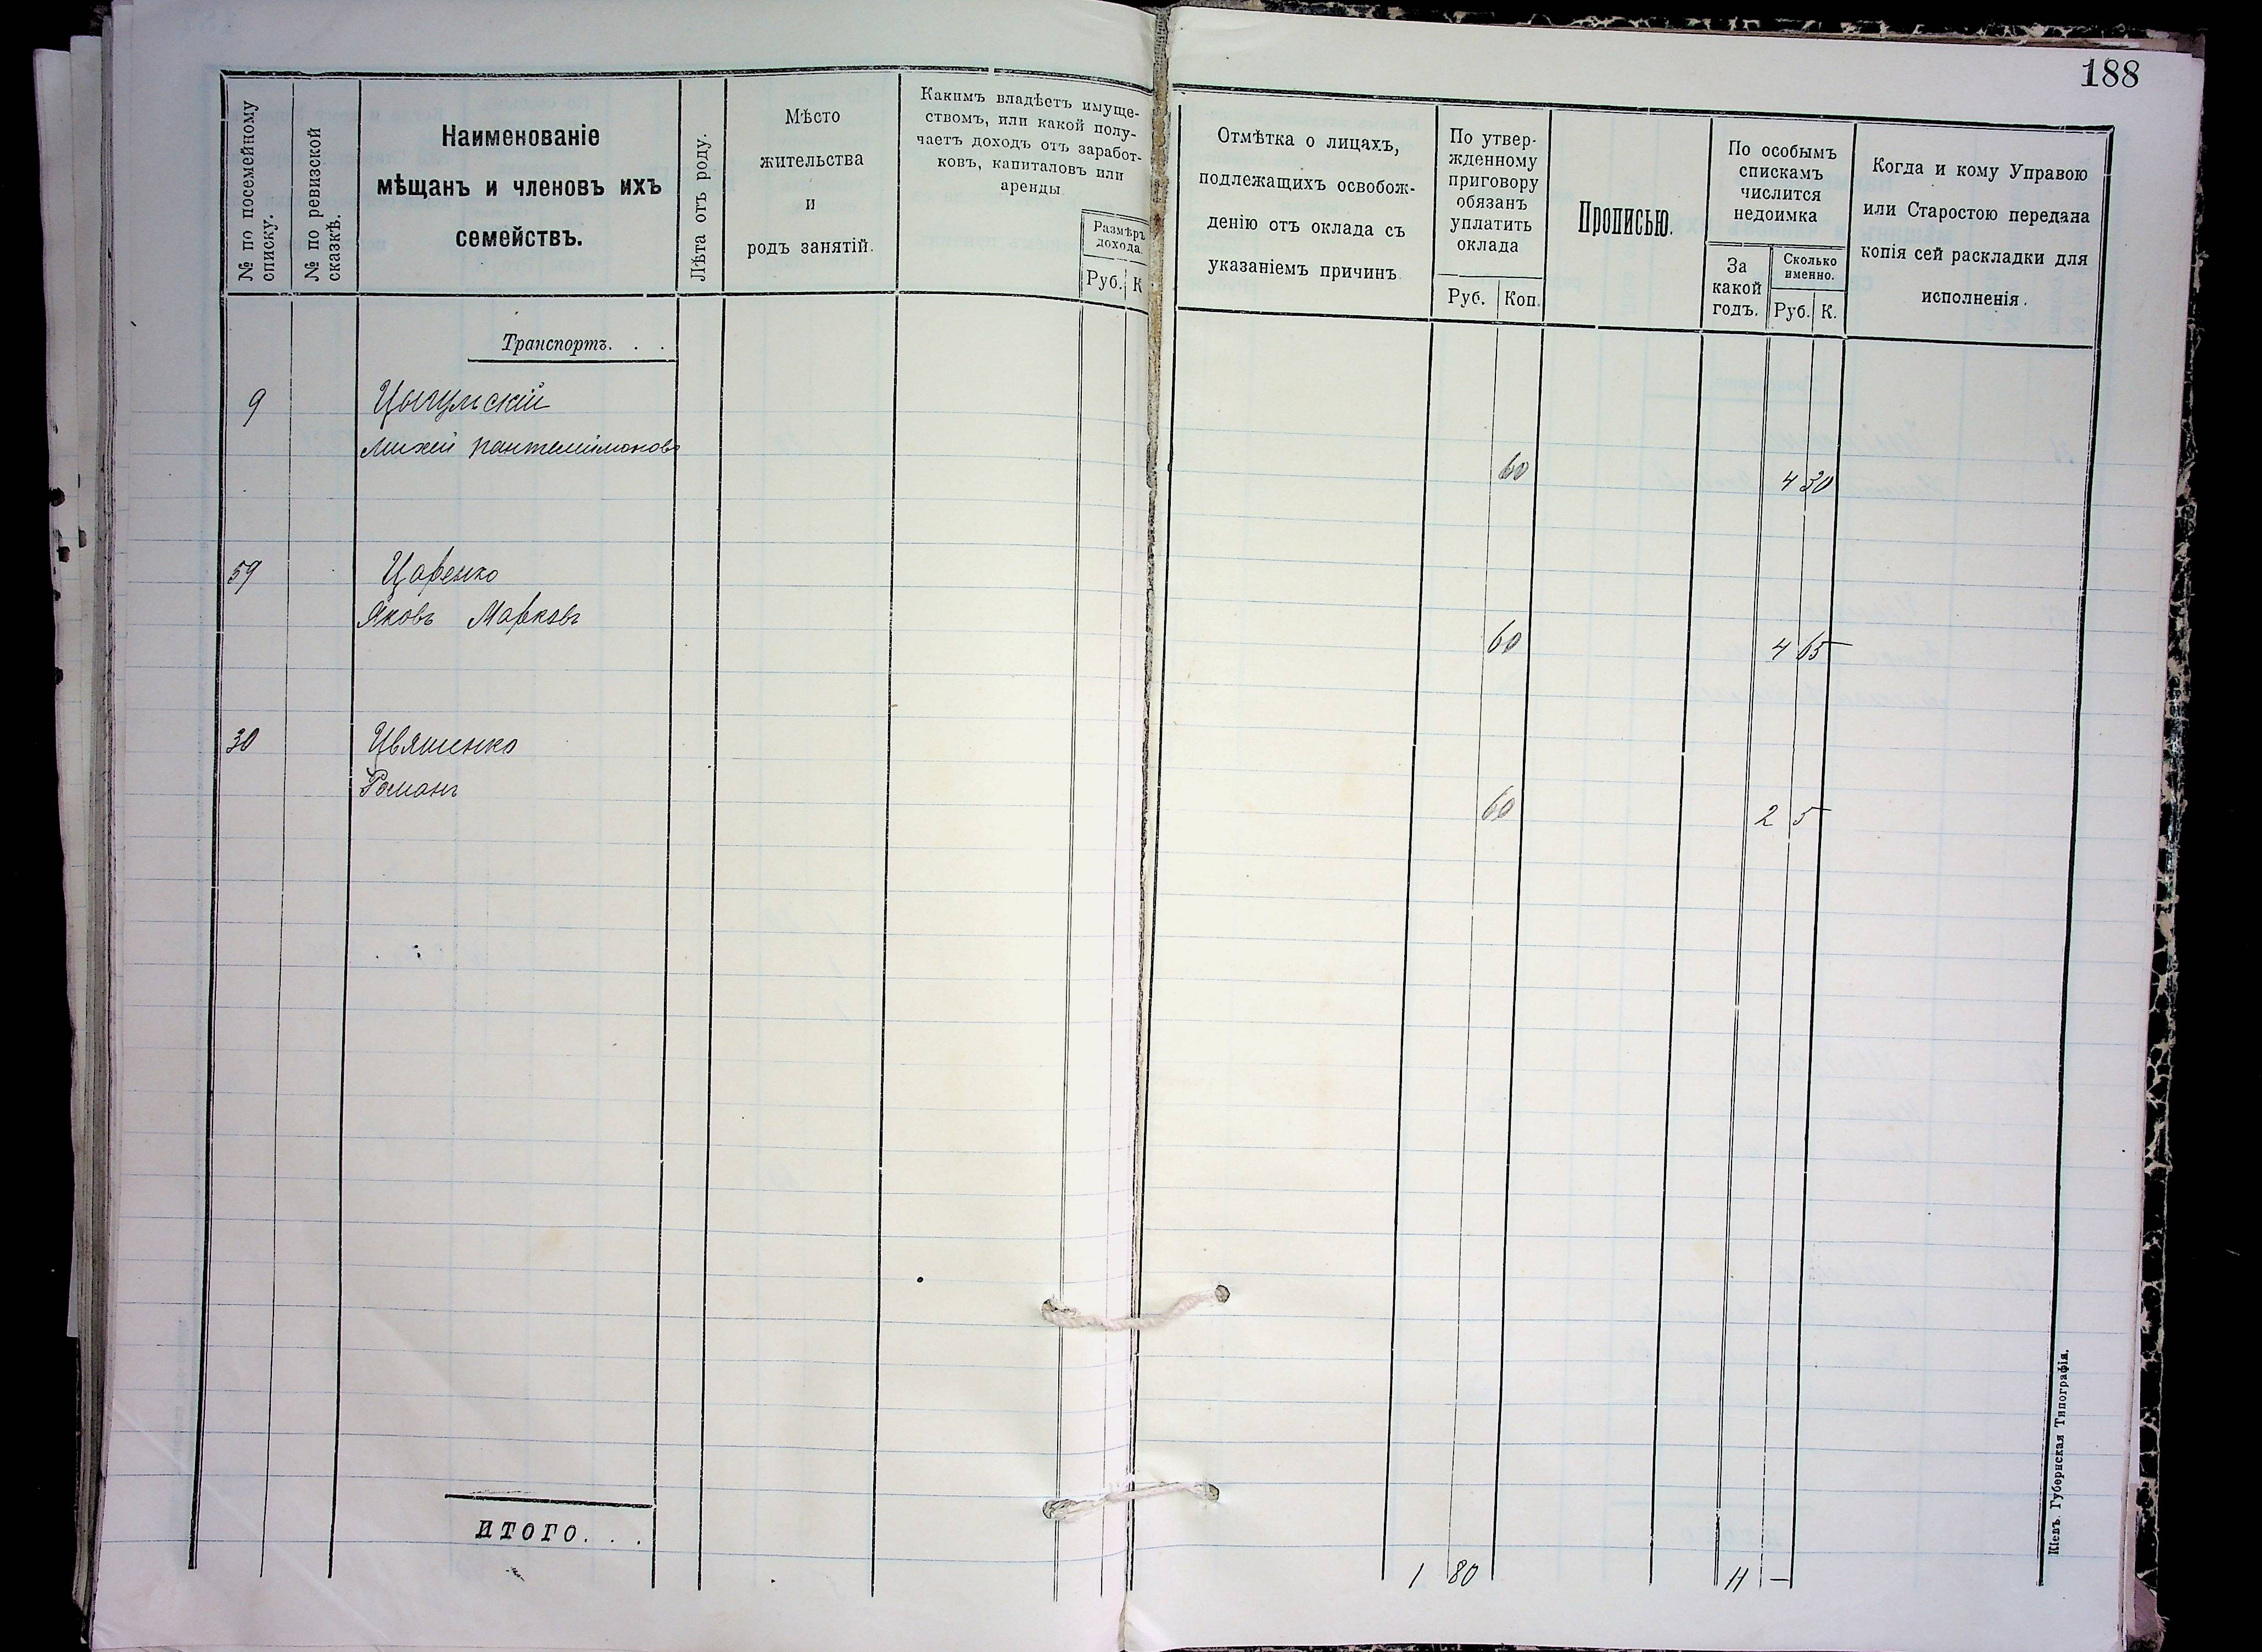 188
№ по посемейному
списку.
№ по ревизской
скаскѣ.
Наименованіе
мѣщанъ и членовъ ихъ
семействъ.
Лѣта отъ роду.
Мѣсто
жительства
и
родъ занятій.
Какимъ владѣетъ имуще-
ствомъ, или какой полу-
чаетъ доходъ отъ заработ-
ковъ, капиталовъ или
аренды
Размѣръ
дохода.
Руб. К
Отмѣтка о лицахъ,
подлежащихъ освобож-
денію отъ оклада съ
указаніемъ причинъ
По утвер-
жденному
приговору
обязанъ
уплатить
оклада
Руб. Коп.
Прописью.
По особымъ
спискамъ
числится
недоимка
За
какой
годъ.
Сколько
именно.
Руб. К.
Когда и кому Управою
или Старостою передана
копія сей раскладки для
исполненія.
Транспортъ. . .
9
Михей Пантелимоновъ 60 4 30
59 Царенко
Яковъ Марковъ 60 4 65
30
Романъ 60 2 5
ИТОГО. . . 1 80 11 —
Кіевъ. Губернская Типографія.